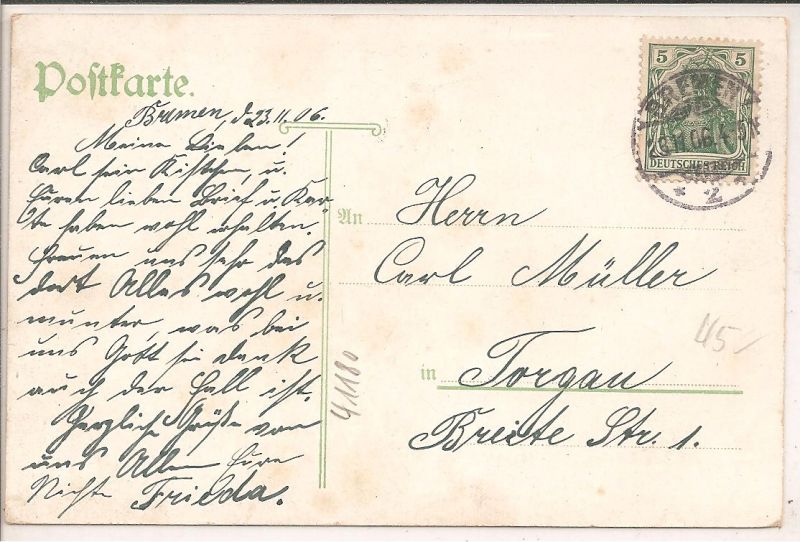 Postkarte.
Bremen, d. 23.11.06.
Meine Lieben!
Carl sein Kistchen, u.
Euren lieben Brief u. Kar-
te haben wohl erhalten.
Freuen uns sehr das
dort Alles wohl u.
munter, was bei
uns Gott sei dank
auch der Fall ist.
Herzliche Grüße von
uns Allen Eure
Nichte Frieda.
5 5
DEUTSCHES REICH
BREMEN
11.06
* 2
An Herrn
Carl Müller
in Torgau
Breite Str. 1.
45-
4.1180